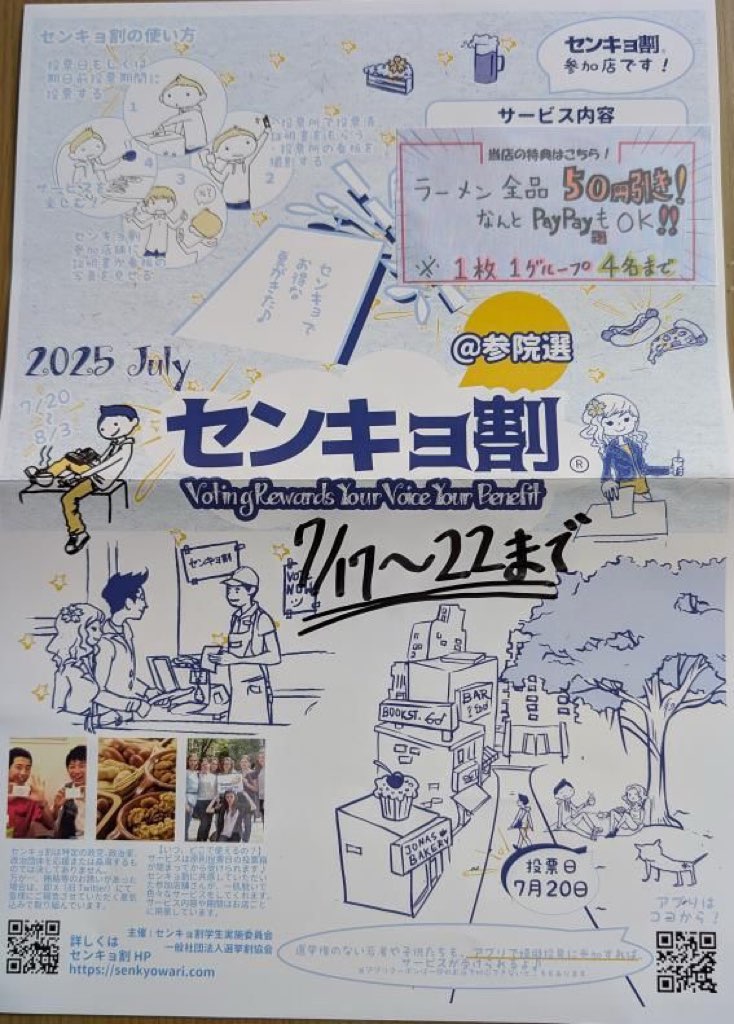 センキョ割の使い方
投票日もしくは
期日前投票期間に
投票する
1
投票所で投票済
証明書をもらう
投票所の看板を
撮影する
2
4
3
サービスを
楽しむ
センキョ割
参加店舗に
証明書か看板の
写真を見せる
センキョ割®
参加店です!
サービス内容
当店の特典はこちら!
ラーメン 全品 50円引き!
なんと PayPayも OK!!
※ 1枚 1グループ 4名まで
センキョで
お得な
夏がきた♪
2025 July
7/20
~
8/3
@参院選
センキョ割®
Voting Rewards Your Voice Your Benefit
7/17〜22まで
センキョ割
BAR
BOOKST.
JONAS
BAKERY
投票日
7月20日
センキョ割は特定の政党、政治家、
政治団体を応援または品評するも
のではありません。
【いつ、どこで使えるの?】
アプリは
コヨから!
主催:センキョ割学生実施委員会
一般社団法人選挙割協会
詳しくは
センキョ割 HP
https://senkyowari.com
選挙権のない若者や子供たちも、アプリで模擬投票に参加すれば
サービスが受けられるよ♪